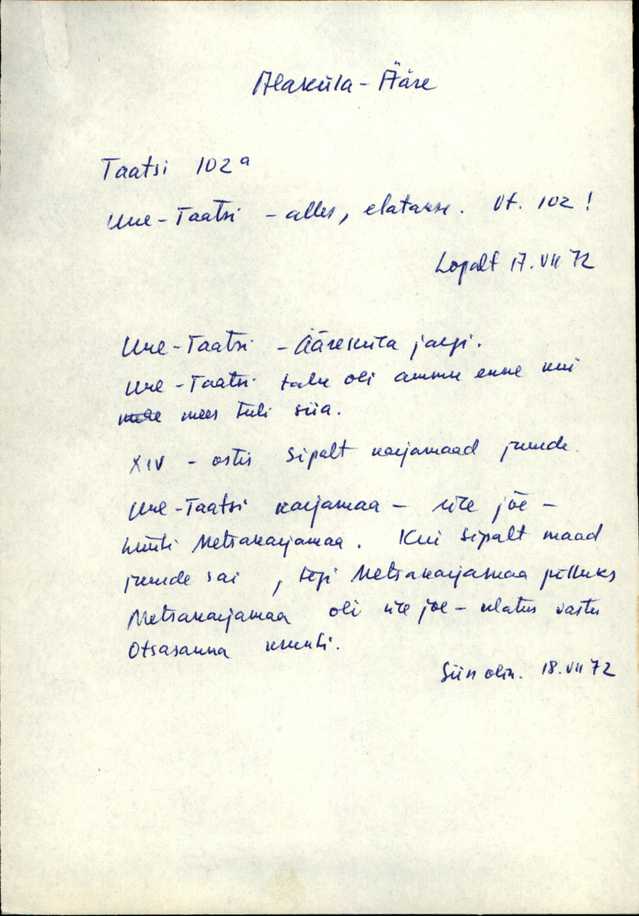 Alaküla - Ääre
Taatsi 102a
Uue-Taatsi - alles, elatakse. Vt. 102!
Lopalt 17. VII 72
Uue-Taatsi - Ääreküla järgi.
Uue-Taatsi talu oli ammu enne kui
mees tuli siia.
XIV - ostis Sipalt karjamaad juurde.
Uue-Taatsi karjamaa - üle jõe -
hüüti Metsakarjamaa. Kui Sipalt maad
juurde sai, tegi Metsakarjamaa põlluks
Metsakarjamaa oli üle jõe - ulatus vastu
Otsasauna krunti.
Siin olin. 18. VII 72